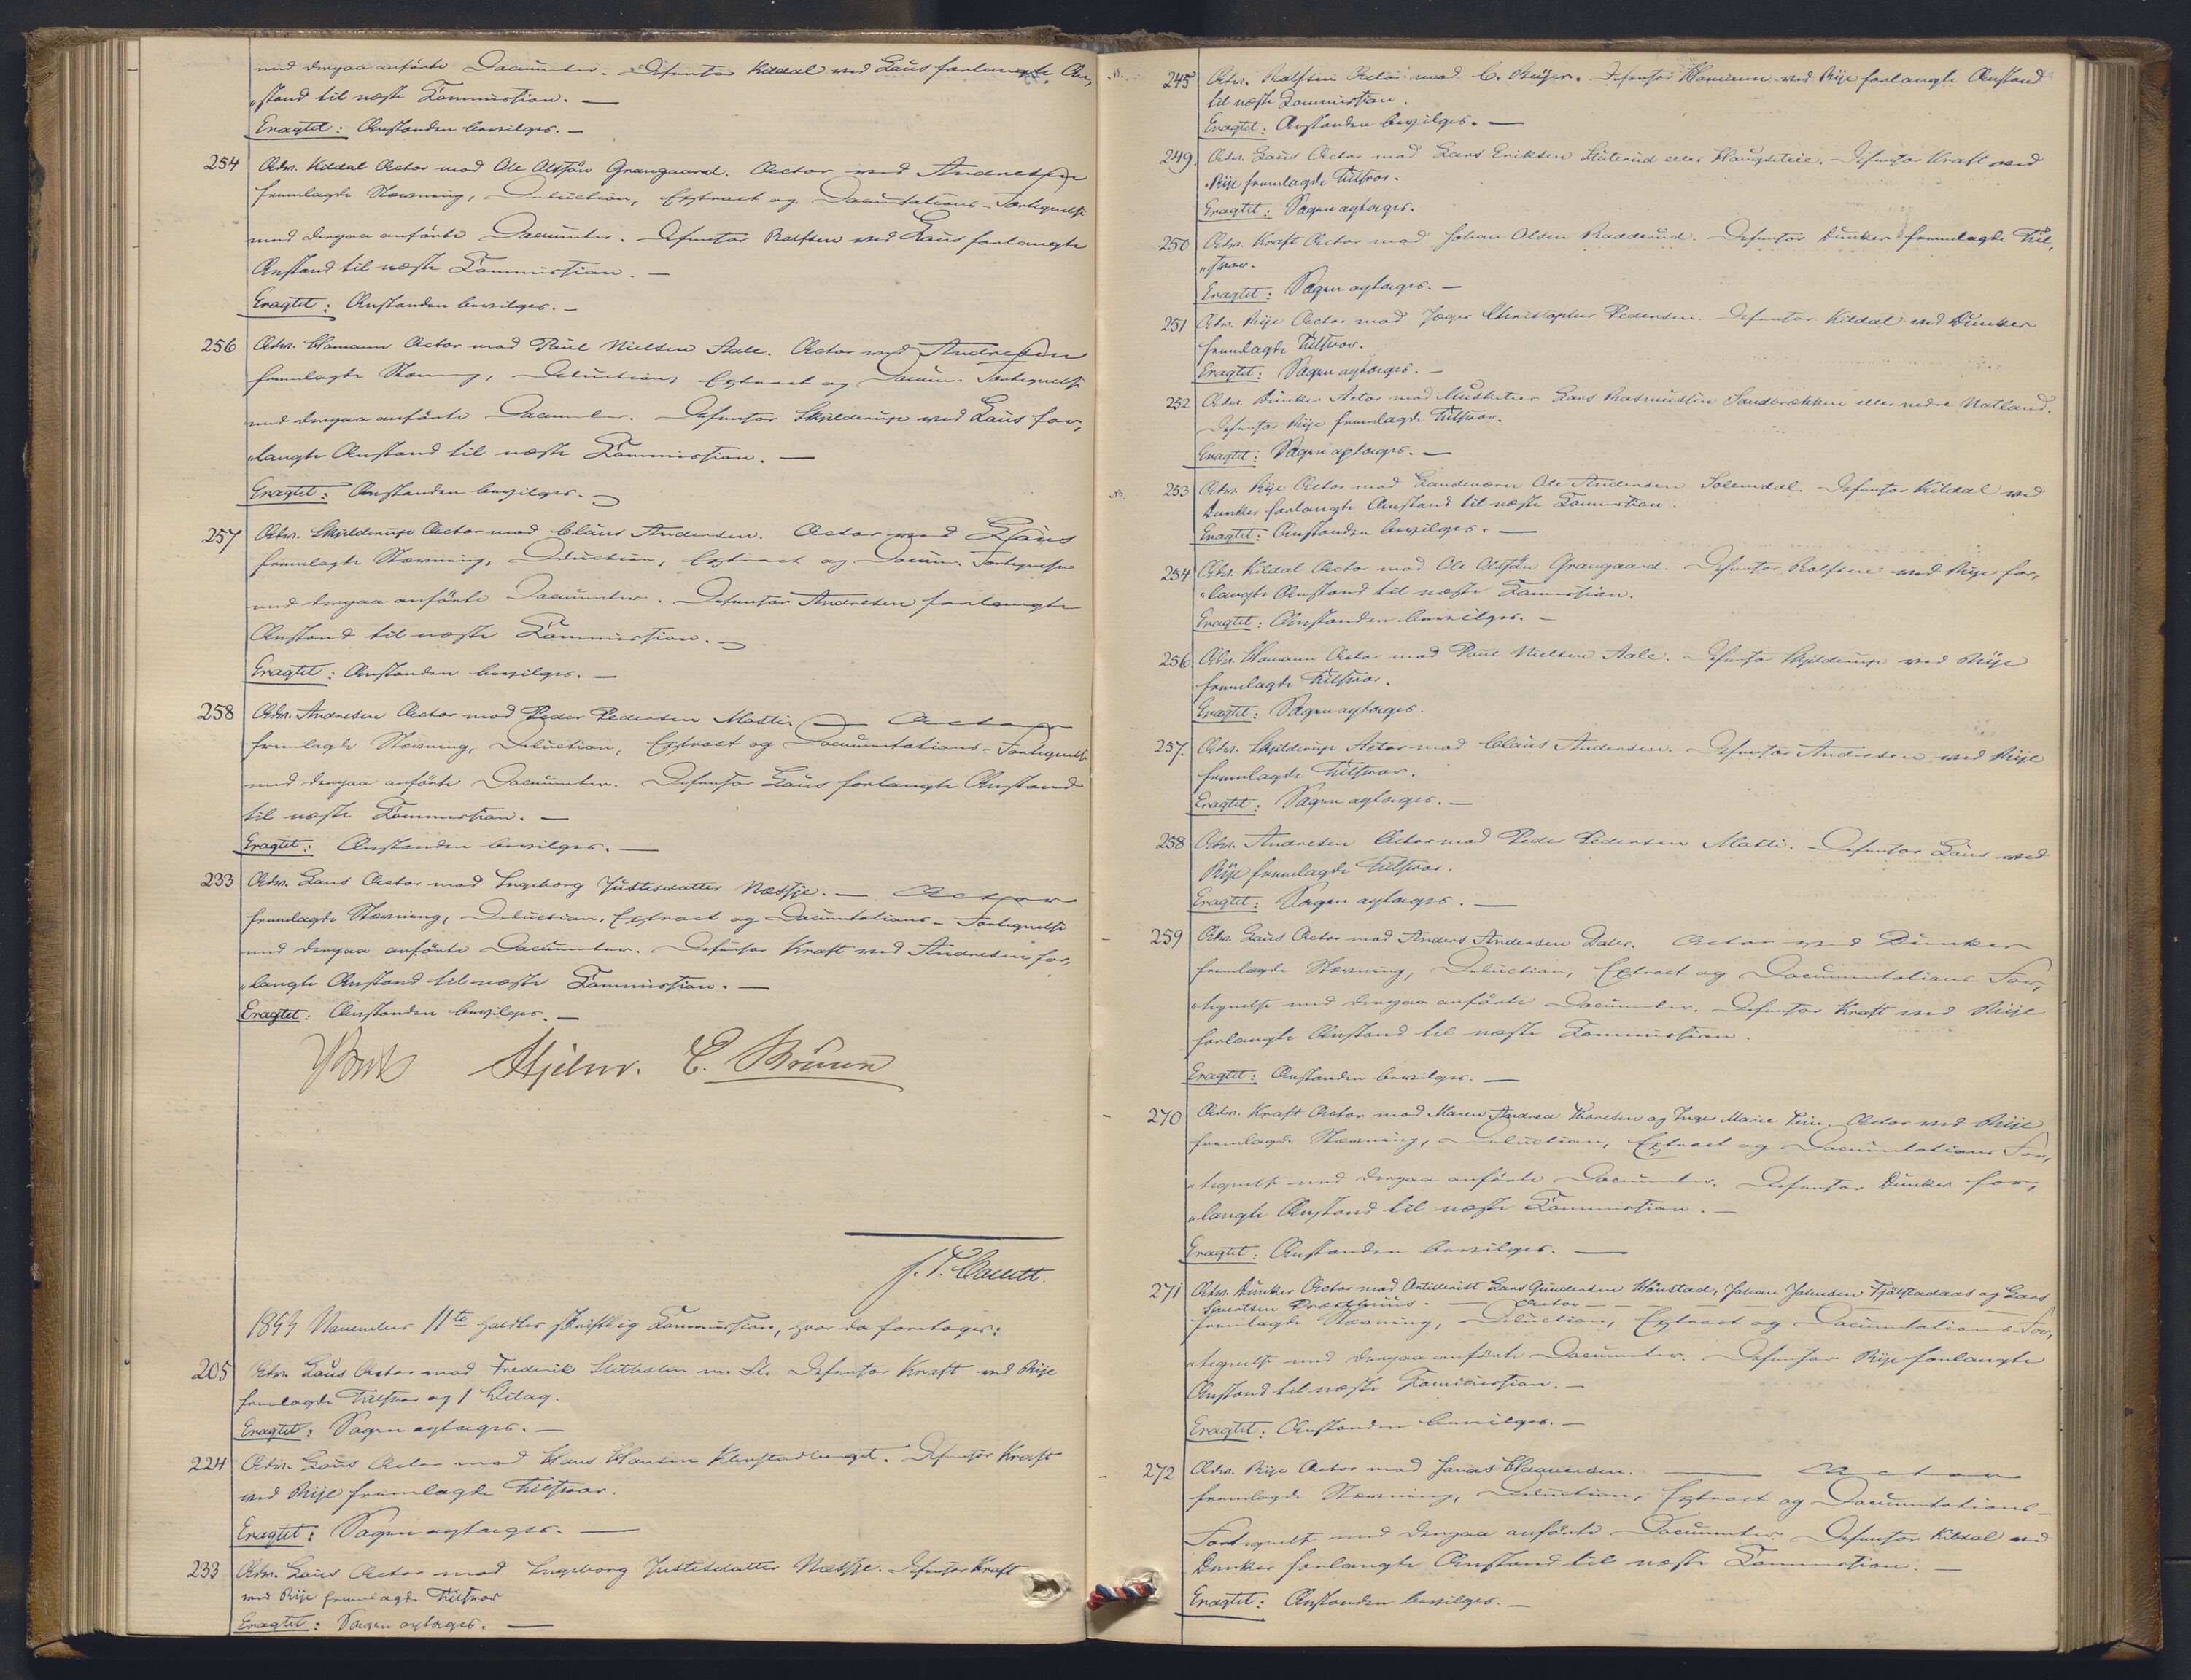 med derpaa anförte Documenter. Defensor Kildal ved Laus forlangte An,
„stand til næste Commission. —
Eragtet: Anstanden bevilges. —
254 Adv. Kildal Actor mod Ole Grangaard. Actor ved Andresen
fremlagde Stævning, Deduction, Extract og Documentations-Fortegnelse
med derpaa anförte Documenter. Defensor Rolfsen ved Laus forlangte
Anstand til næste Commission. —
Eragtet: Anstanden bevilges. —
256 Adv. Homann Actor mod Paul Nielsen Aale. Actor ved Andresen
fremlagde Stævning, Deduction, Extract og Docum. Fortegnelse
med derpaa anförte Documenter. Defensor Skjelderup ved Laus for,
„langte Anstand til næste Commission. —
Eragtet: Anstanden bevilges. —
257 Adv. Skjelderup Actor mod Claus Andersen. Actor ved Laus
fremlagde Stævning, Deduction, Extract og Docum. Fortegnelse
med derpaa anförte Documenter. Defensor Andresen forlangte
Anstand til næste Commission. —
Eragtet: Anstanden bevilges. —
258 Adv. Andresen Actor mod Peder Pedersen Matti. — Actor
fremlagde Stævning, Deduction, Extract og Documentations-Fortegnelse
med derpaa anförte Documenter. Defensor Laus forlangte Anstand
til næste Commission. —
Eragtet: Anstanden bevilges. —
233 Adv. Laus Actor mod Ingeborg Justisdatter Næssje. — Actor
fremlagde Stævning, Deduction, Extract og Documentations-Fortegnelse
med derpaa anförte Documenter. Defensor Kraft ved Andresen for,
„langte Anstand til næste Commission. —
Eragtet: Anstanden bevilges. —
Hjelm. C. Bruun
November 11te holdtes skriftlig Commission, hvor da foretoges:
205 Adv. Laus Actor mod Frederik m. Fl. Defensor Kraft ved Rije
fremlagde Tilsvar og 1 Bilag.
Eragtet: Sagen optages. —
224 Adv. Laus Actor mod Hans Hansen. Defensor Kraft
ved Rije fremlagde Tilsvar.
Eragtet: Sagen optages. —
233 Adv. Laus Actor mod Ingeborg Justisdatter Næssje. Defensor Kraft
ved Rije fremlagde Tilsvar
Eragtet: Sagen optages. —
245 Adv. Rolfsen Actor mod C. Defensor Homann ved Rije forlangte Anstand
til næste Commission.
Eragtet: Anstanden bevilges. —
249. Adv. Laus Actor mod Lars Eriksen eller. Defensor Kraft ved
Rije fremlagde Tilsvar.
Eragtet: Sagen optages.
250 Adv. Kraft Actor mod Johan Olsen Radderud. Defensor Dunker fremlagde Til,
„svar.
Eragtet: Sagen optages. —
251 Adv. Rije Actor mod Jæger Christopher Pedersen. Defensor Kildal ved Dunker
fremlagde Tilsvar.
Eragtet: Sagen optages. —
252 Adv. Dunker Actor mod Musketeer Lars Rasmussen Sandbrækken eller nedre Notland.
Defensor Rije fremlagde Tilsvar.
Eragtet: Sagen optages. —
253 Adv. Rije Actor mod Landeværn Ole Andersen Solemdal. Defensor Kildal ved
Dunker forlangte Anstand til næste Commission.
Eragtet: Anstanden bevilges. —
254. Adv. Kildal Actor mod Ole Grangaard. Defensor Rolfsen ved Rije for,
„langte Anstand til næste Commission.
Eragtet: Anstanden bevilges. —
256 Adv. Homann Actor mod Paul Nielsen Aale. Defensor Skjelderup ved Rije
fremlagde Tilsvar.
Eragtet: Sagen optages.
257. Adv. Skjelderup Actor mod Claus Andersen. Defensor Andresen ved Rije
fremlagde Tilsvar.
Eragtet: Sagen optages. —
258 Adv. Andresen Actor mod Peder Pedersen Matti. Defensor Laus ved
Rije fremlagde Tilsvar.
Eragtet: Sagen optages. —
259 Adv. Laus Actor mod Anders Andersen Daler. Actor ved Dunker
fremlagde Stævning, Deduction, Extract og Documentations For,
„tegnelse med derpaa anförte Documenter. Defensor Kraft ved Rije
forlangte Anstand til næste Commission.
Eragtet: Anstanden bevilges. —
270 Adv. Kraft Actor mod Maren Andrea Thoresen og Inger Marie. Actor ved Rije
fremlagde Stævning, Deduction, Extract og Documentations For,
„tegnelse med derpaa anförte Documenter. Defensor Dunker for,
„langte Anstand til næste Commission. —
Eragtet: Anstanden bevilges. —
271 Adv. Dunker Actor mod Artillerist Lars Gundersen Haanstad, Johan Johnsen og Lars
Sivertsen Præsthuus. — Actor —
fremlagde Stævning, Deduction, Extract og Documentations For,
„tegnelse med derpaa anförte Documenter. Defensor Rije forlangte
Anstand til næste Commission. —
Eragtet: Anstanden bevilges. —
272 Adv. Rije Actor mod Jonas Haaversen. — Actor
fremlagde Stævning, Deduction, Extract og Documentations-
Fortegnelse med derpaa anförte Documenter. Defensor Kildal ved
Dunker forlangte Anstand til næste Commission. —
Eragtet: Anstanden bevilges. —